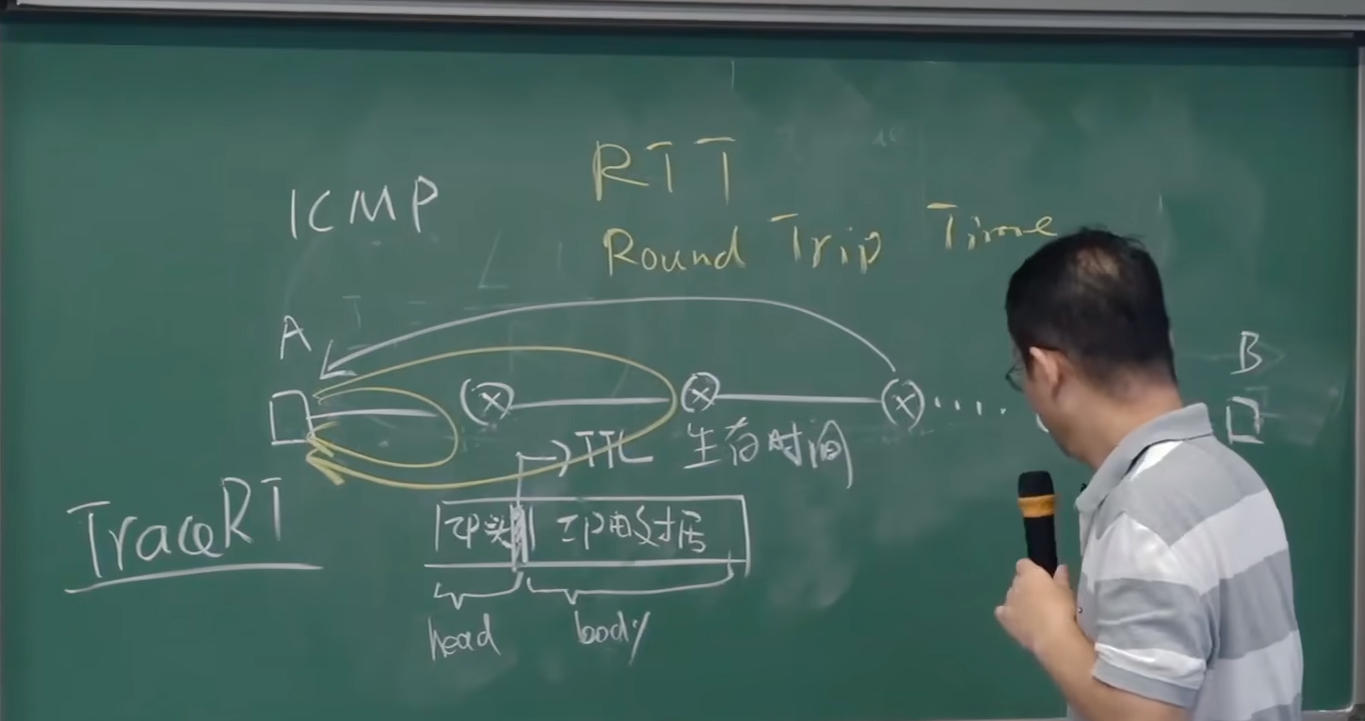 RTT
ICMP
Round Trip Time
A
B
TTL 生存时间
TraceRT
IP头
IP
head
body